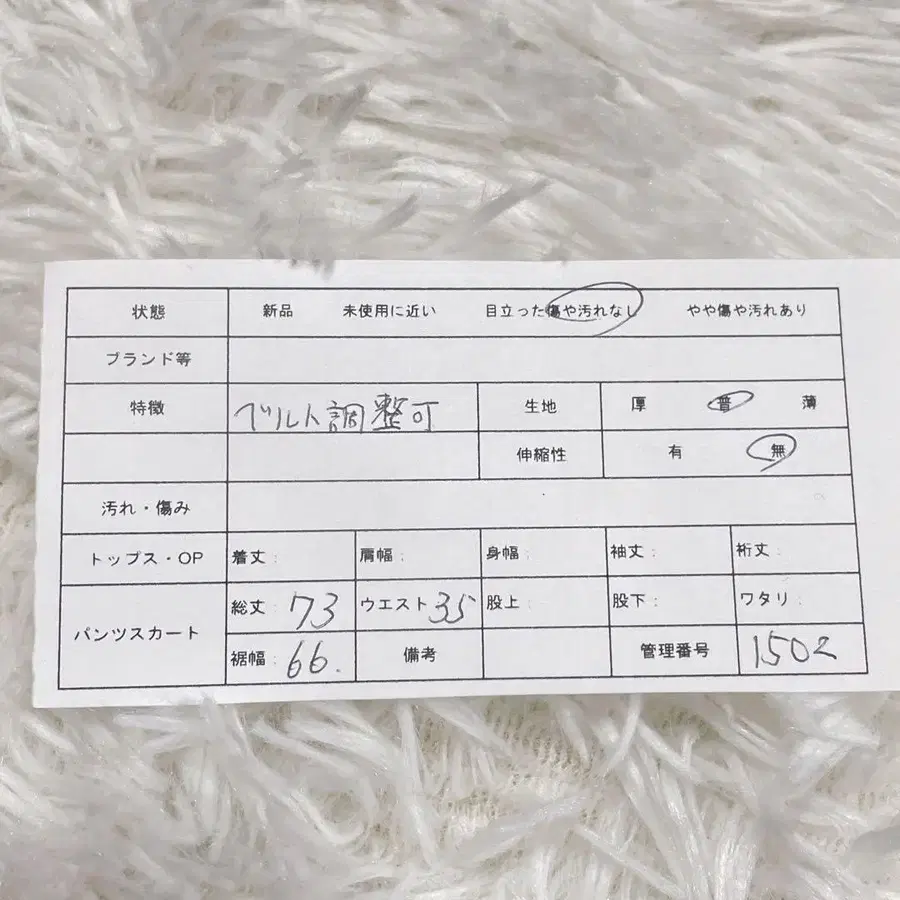 状態 新品 未使用に近い 目立った傷や汚れなし やや傷や汚れあり
ブランド等
特徴 ベルト調整可 生地 厚 普 薄
伸縮性 有 無
汚れ・傷み
トップス・OP 着丈: 肩幅: 身幅: 袖丈: 裄丈:
パンツスカート 総丈: 73 ウエスト 35 股上: 股下: ワタリ:
裾幅: 66. 備考 管理番号 1502